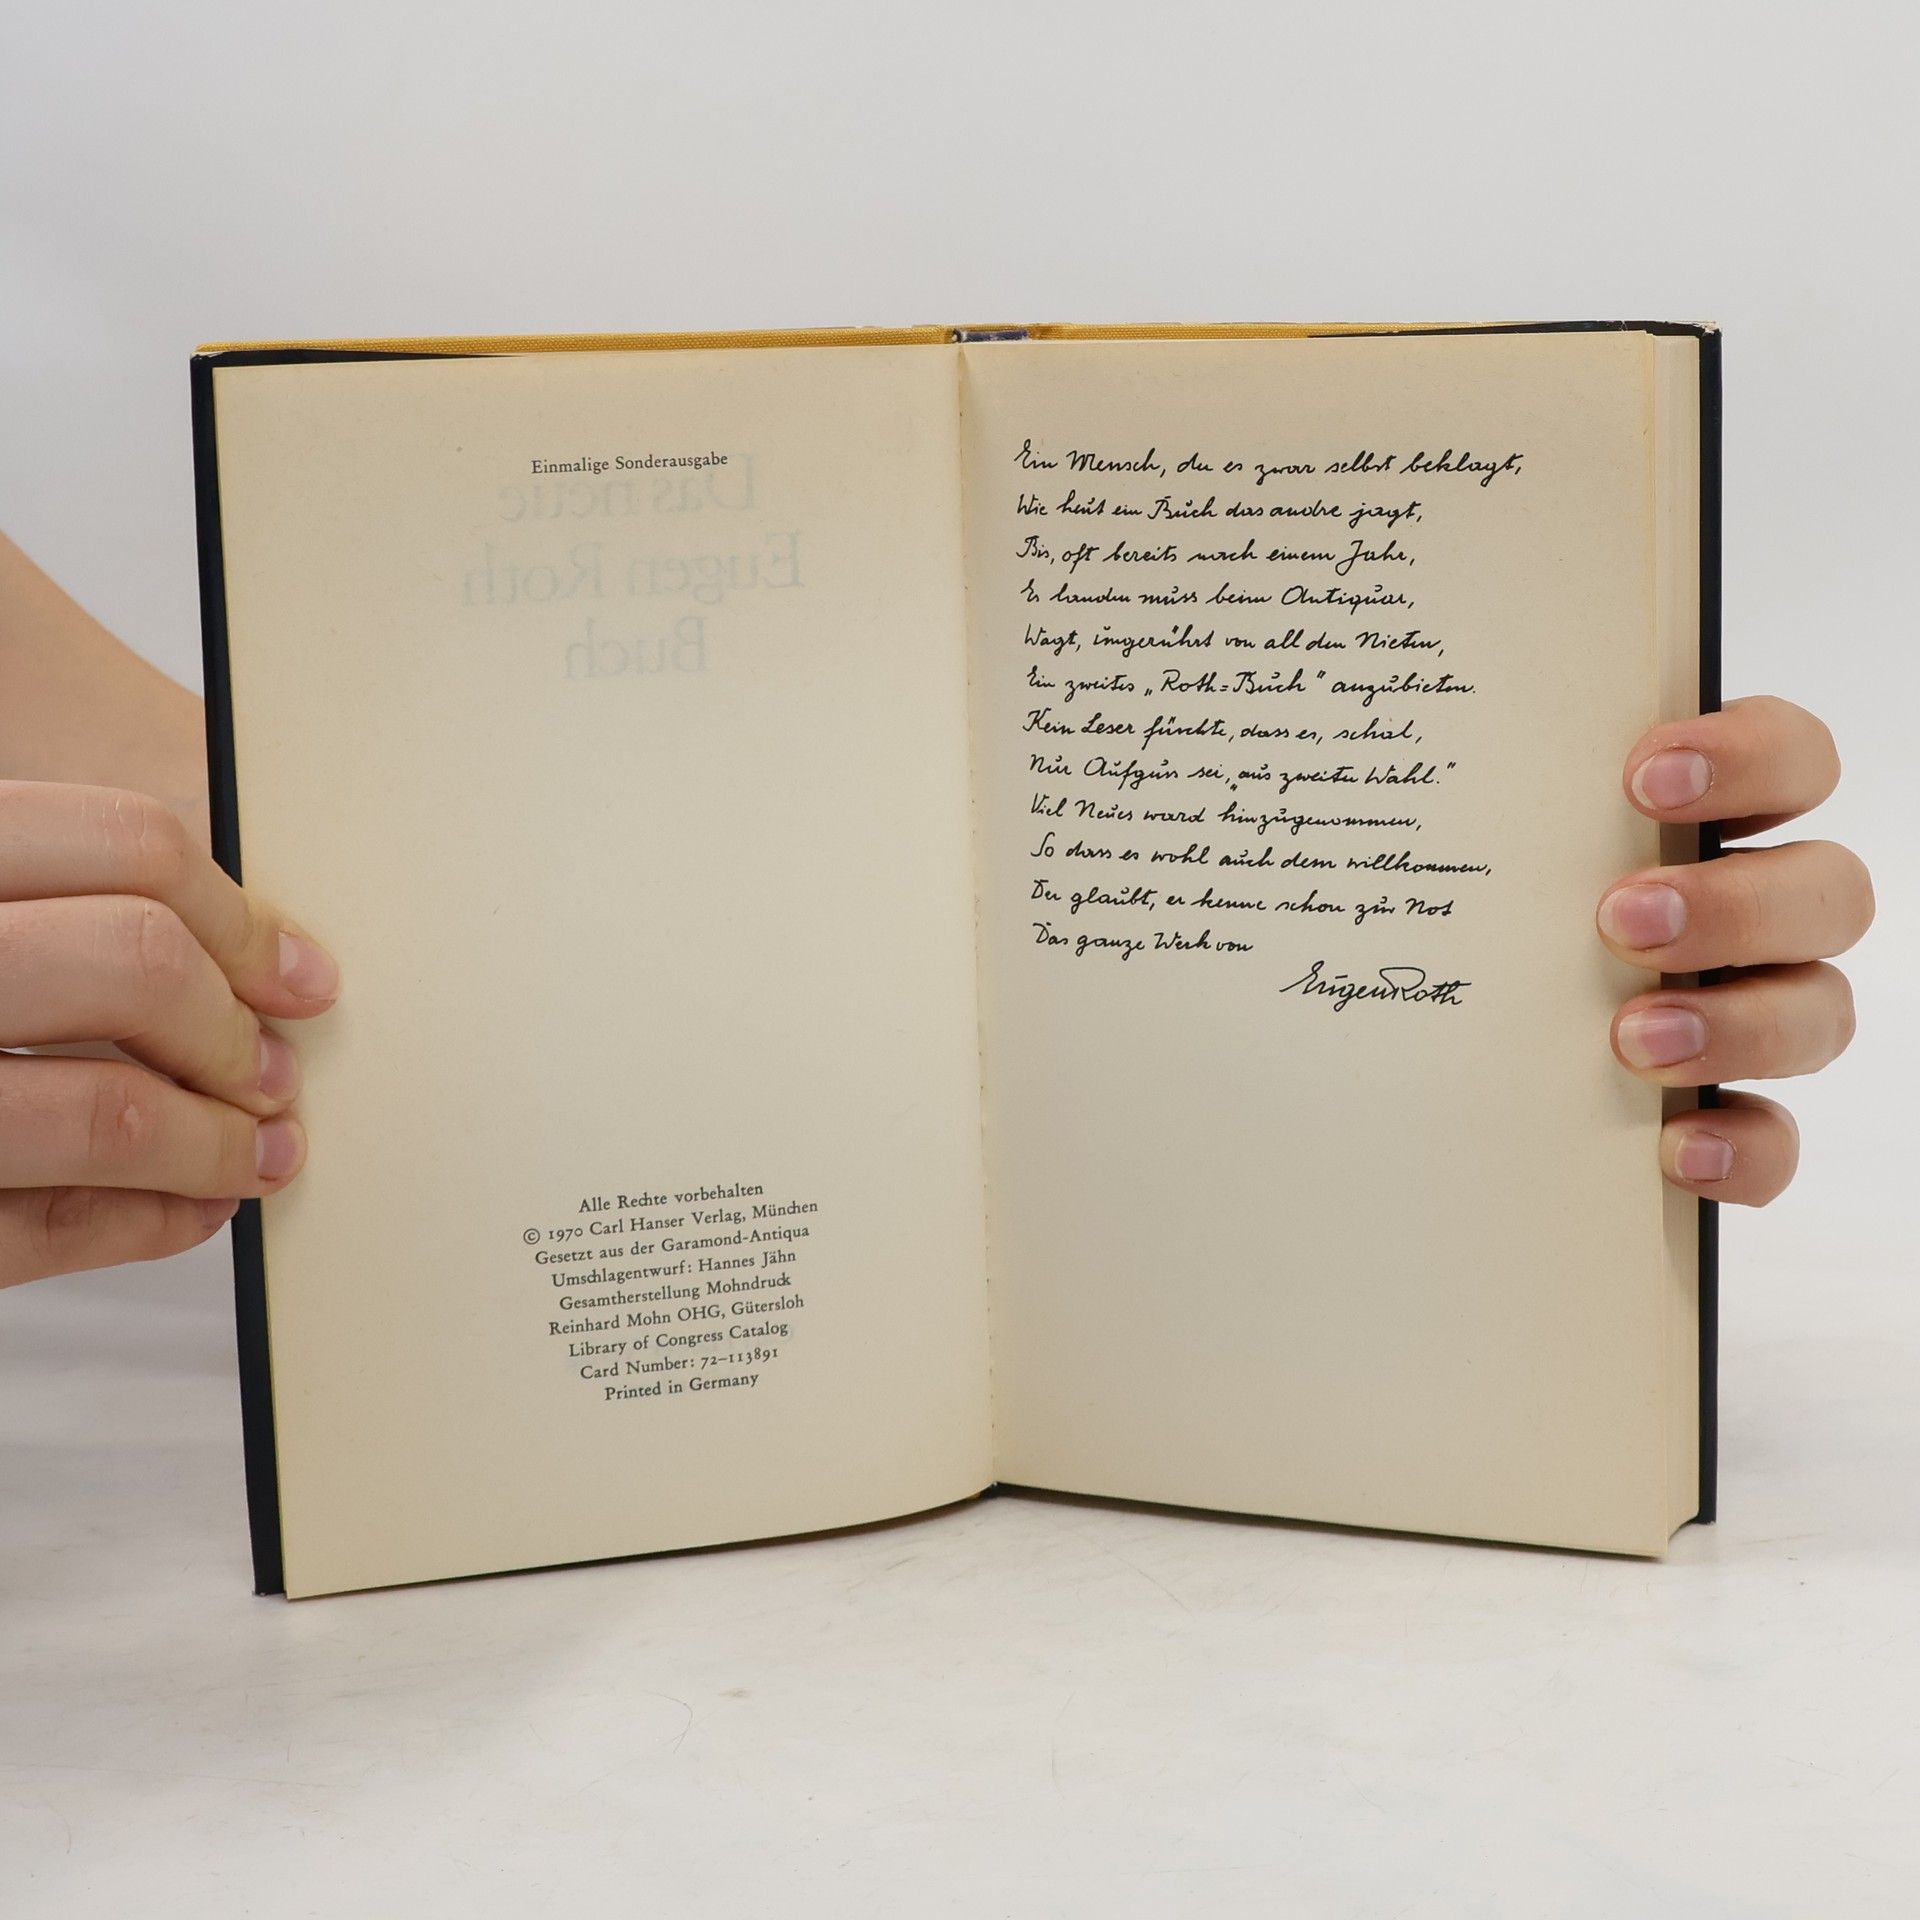 Einmalige Sonderausgabe
Das neue
Eugen Roth
Buch
Alle Rechte vorbehalten
© 1970 Carl Hanser Verlag, München
Gesetzt aus der Garamond-Antiqua
Umschlagentwurf: Hannes Jähn
Gesamtherstellung Mohndruck
Reinhard Mohn OHG, Gütersloh
Library of Congress Catalog
Card Number: 72-113891
Printed in Germany
Ein Mensch, der es zwar selbst beklagt,
Wie heut ein Buch das andre jagt,
Bis, oft bereits nach einem Jahr,
Es landen muss beim Antiquar,
Wagt, ungerührt von all den Nieten,
Ein zweites „Roth=Buch" anzubieten.
Kein Leser fürchte, dass es, schal,
Nur Aufguss sei, „aus zweiter Wahl."
Viel Neues ward hinzugenommen,
So dass es wohl auch dem willkommen,
Der glaubt, er kenne schon zur Not
Das ganze Werk von
Eugen Roth